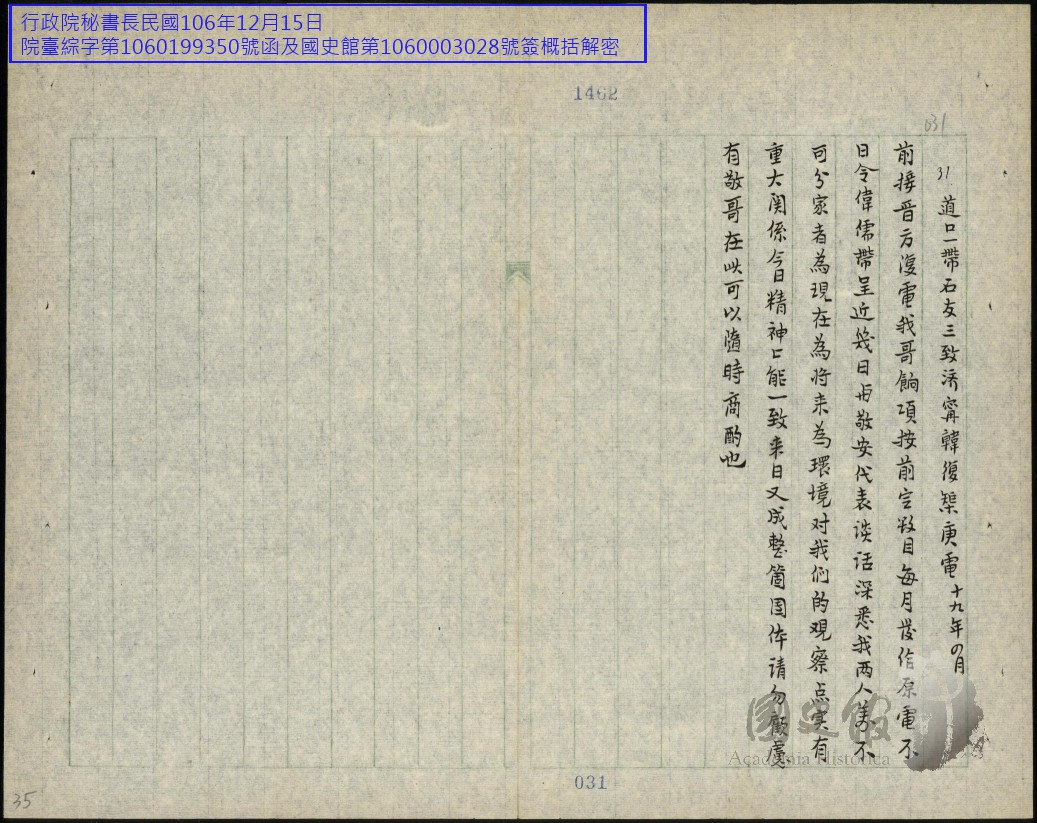 行政院秘書長民國106年12月15日
院臺綜字第1060199350號函及國史館第1060003028號簽概括解密
1462
031
31 道口一帶石友三致濟甯韓復榘庚電 十九年四月
前接晋方復電我哥餉項按前定数目每月發給原電不
日令偉儒帶呈近幾日与敬安代表谈话深悉我两人萬不
可分家者為現在為将来為環境对我们的观察点实有
重大関係今日精神上能一致来日又成整箇団体请勿顧慮
有敬哥在此可以隨時商酌也
國史館
Academia Historica
031
35